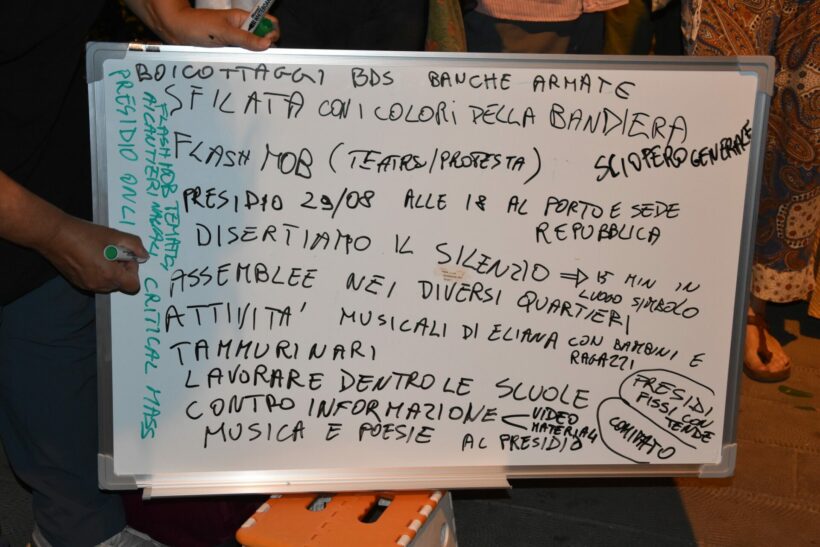 BOICOTTAGGI BDS BANCHE ARMATE
SFILATA CON I COLORI DELLA BANDIERA
FLASH MOB (TEATRO/PROTESTA)
SCIOPERO GENERALE
PRESIDIO 29/08 ALLE 18 AL PORTO E SEDE
REPUBBLICA
DISERTIAMO IL SILENZIO ⇒ 15 MIN IN
LUOGO SIMBOLO
ASSEMBLEE NEI DIVERSI QUARTIERI
ATTIVITA' MUSICALI DI ELIANA CON BAMBINI E
RAGAZZI
TAMMURINARI
LAVORARE DENTRO LE SCUOLE
CONTRO INFORMAZIONE < VIDEO
MATERIALI
MUSICA E POESIE AL PRESIDIO
PRESIDI
FISSI CON
TENDE
COMITATO
FLASH MOB TEMATICI
AI CANTIERI NAVALI CRITICAL MASS
PRESIDIO